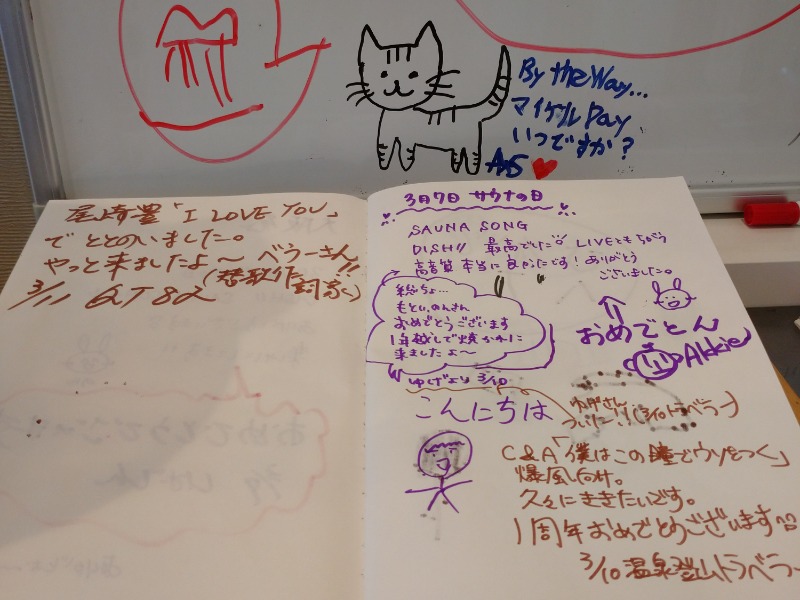 By the Way...
マイケル Day
いつですか?
尾崎豊「I LOVE YOU」
でととのいました。
やっと来ましたよ〜 べうーさん!!
3/11 GT82
3月7日 サウナの日
SAUNA SONG
DISH// 最高でした LIVEともちがう
高音質 本当に良かったです! ありがとう
ございました。
総ちょ...
もとい、のんさん
おめでとうございます
1年越しで焼かれに
来ましたよ〜
ゆげより 3/10
おめでとん
Akkie
こんにちは
ゆげさん
ついた!! (3/10トラベラー)
C&A「僕はこの瞳でウソをつく」
爆風向け。
久々にききたいです。
1周年おめでとうございます
3/10 温泉登山トラベラー